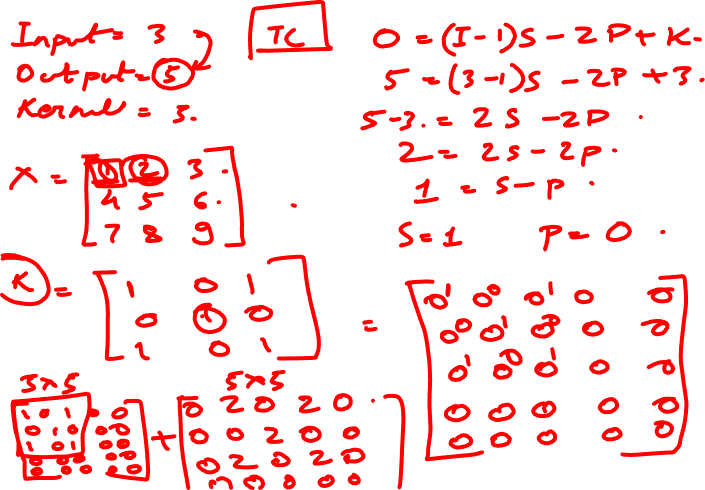 Input = 3
Output = 5
Kernel = 3.
TC
O = (I-1)S - 2P + K.
5 = (3-1)S - 2P + 3.
5-3. = 2S - 2P.
2 = 2S - 2P.
1 = S - P.
S = 1 P = 0.
X = [1 2 3.
4 5 6.
7 8 9]
K = [1 0 1
0 1 0
1 0 1]
=
0 1 0 0 0 1 0 0
0 0 0 1 0 0 0 0
0 1 0 0 0 1 0 0
0 0 0 0 0
0 0 0 0 0
3x5
1 0 1 0 0
0 1 0 0 0
1 0 1 0 0
0 0 0 0 0
+
5x5
0 2 0 2 0
0 0 2 0 0
0 2 0 2 0
0 0 0 0 0